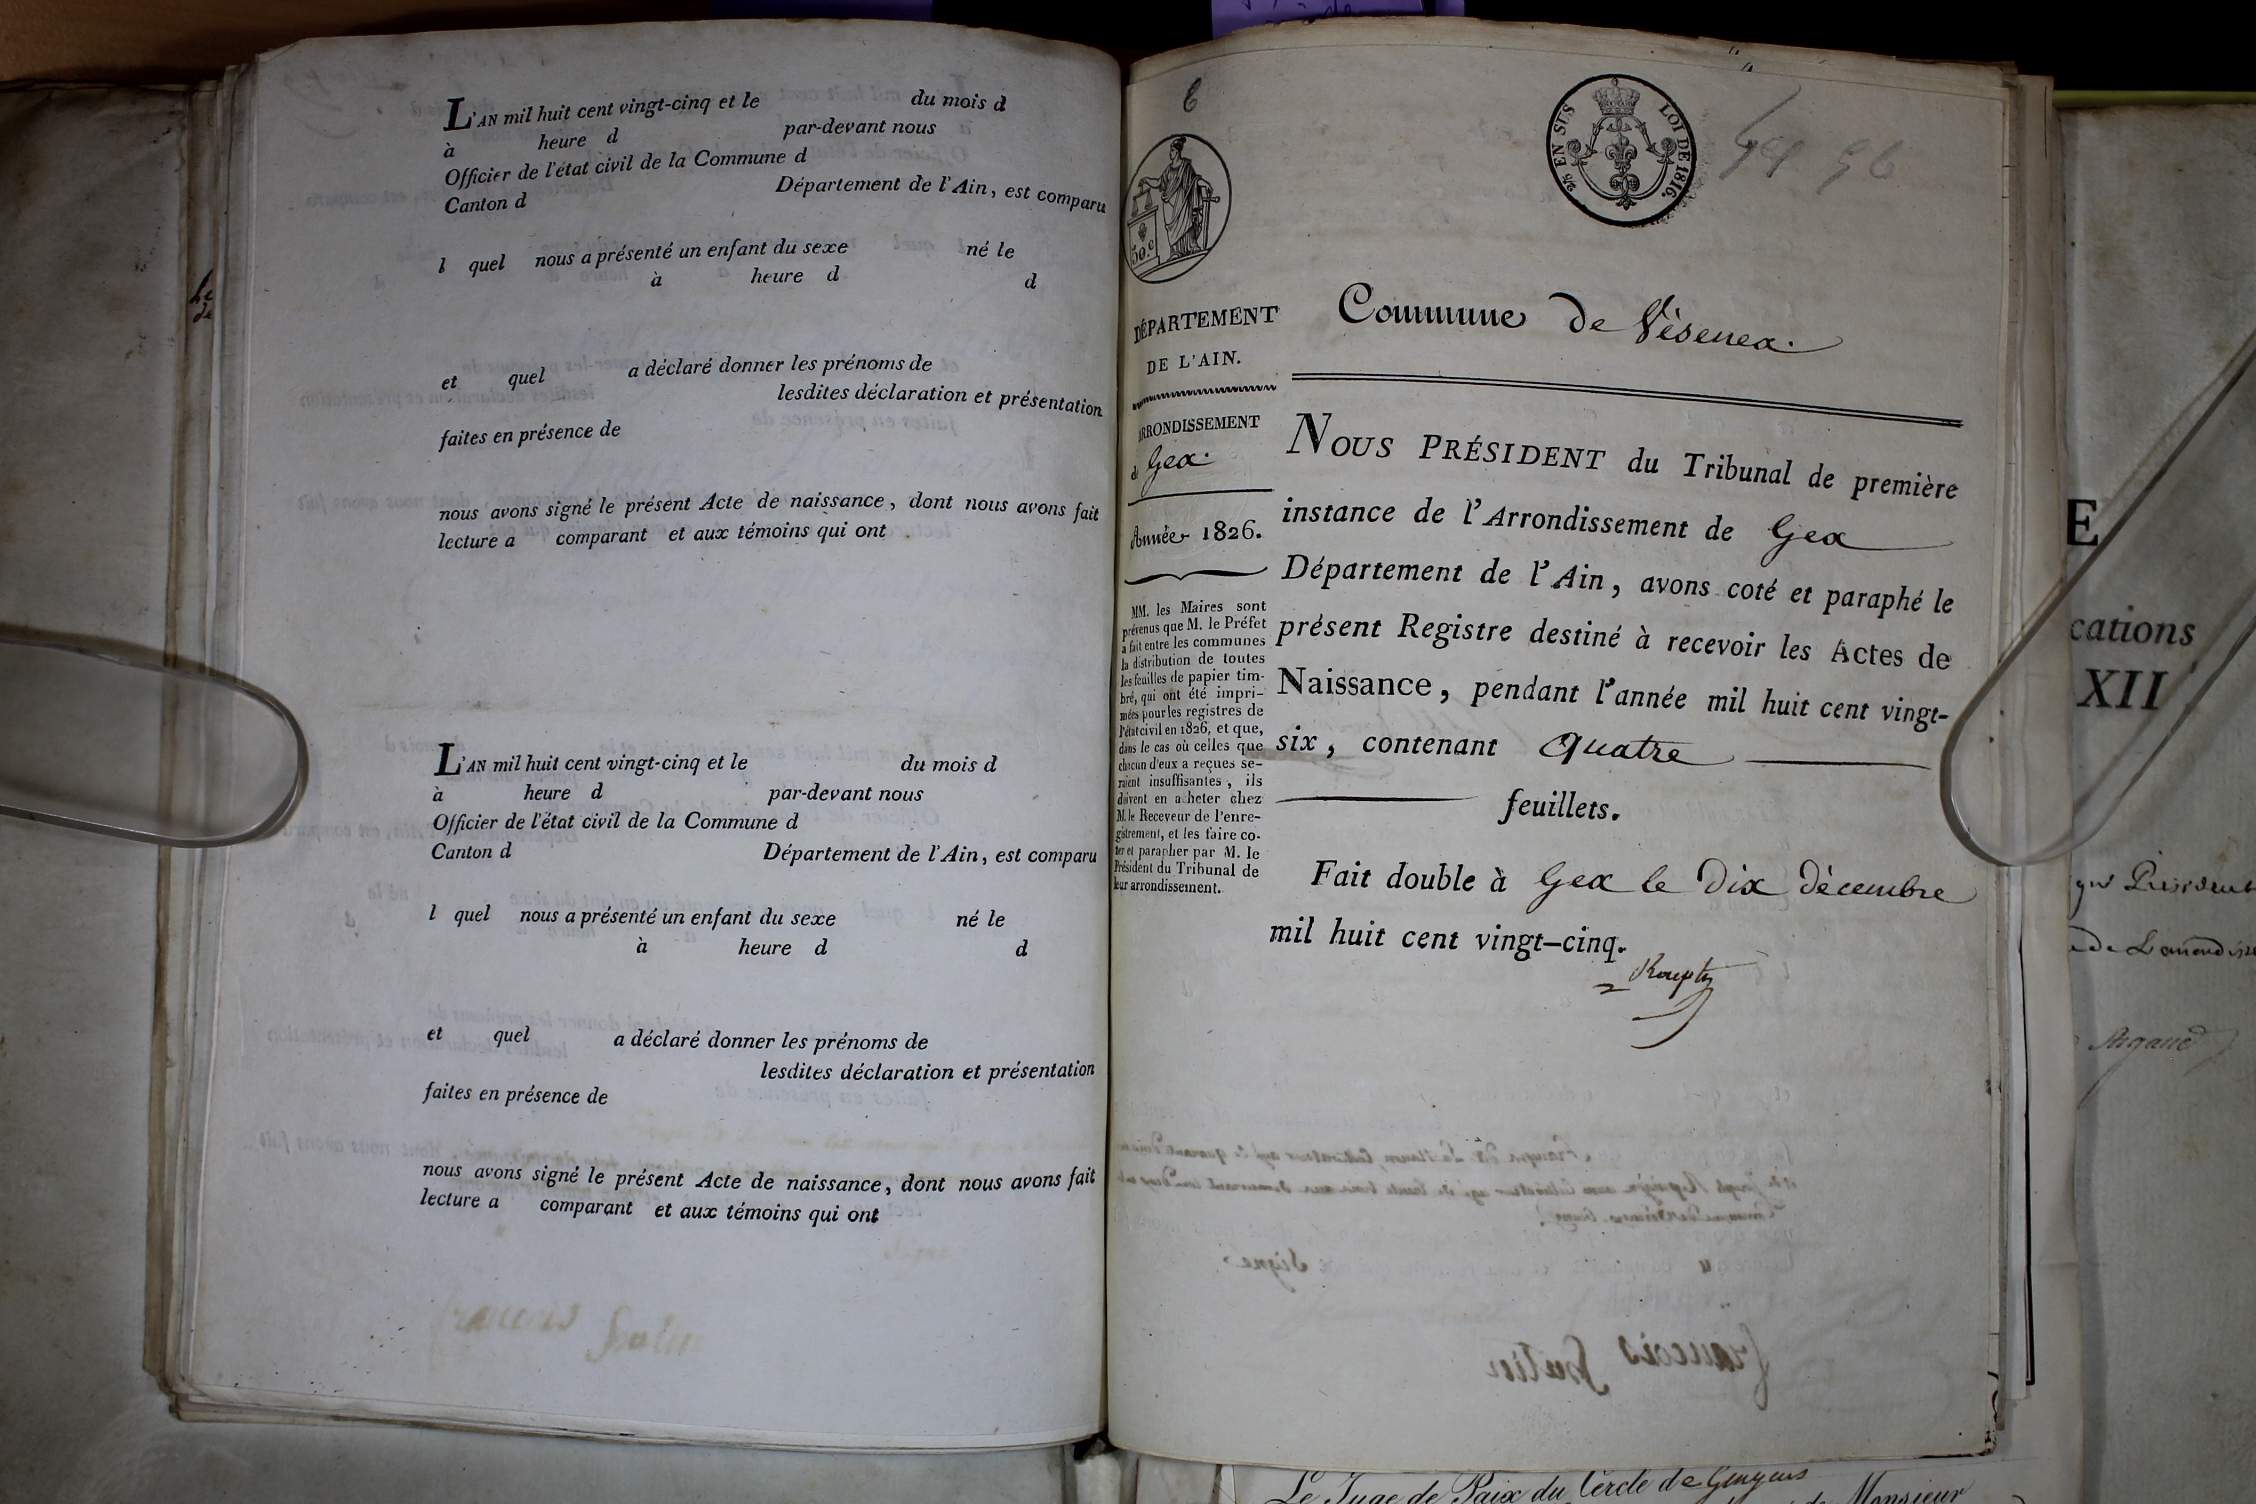 L'AN mil huit cent vingt-cinq et le du mois d
à heure d par-devant nous
Officier de l'état civil de la Commune d
Canton d Département de l'Ain, est comparu
l quel nous a présenté un enfant du sexe né le
à heure d d
et quel a déclaré donner les prénoms de
lesdites déclaration et présentation
faites en présence de
nous avons signé le présent Acte de naissance, dont nous avons fait
lecture a comparant et aux témoins qui ont
L'AN mil huit cent vingt-cinq et le du mois d
à heure d par-devant nous
Officier de l'état civil de la Commune d
Canton d Département de l'Ain, est comparu
l quel nous a présenté un enfant du sexe né le
à heure d d
et quel a déclaré donner les prénoms de
lesdites déclaration et présentation
faites en présence de
nous avons signé le présent Acte de naissance, dont nous avons fait
lecture a comparant et aux témoins qui ont
EN SUS LOI DE 1816.
50.c
DÉPARTEMENT
DE L'AIN.
ARRONDISSEMENT
de Gex.
Année 1826.
MM. les Maires sont
prévenus que M. le Préfet
a fait entre les communes
la distribution de toutes
les feuilles de papier tim-
bré, qui ont été impri-
mées pour les registres de
l'état civil en 1826, et que,
dans le cas où celles que
chacun d'eux a reçues se-
raient insuffisantes, ils
doivent en acheter chez
M. le Receveur de l'enre-
gistrement, et les faire co-
ter et parapher par M. le
Président du Tribunal de
leur arrondissement.
Commune de Vésenex.
NOUS PRÉSIDENT du Tribunal de première
instance de l'Arrondissement de Gex
Département de l'Ain, avons coté et paraphé le
présent Registre destiné à recevoir les Actes de
Naissance, pendant l'année mil huit cent vingt-
six, contenant quatre
feuillets.
Fait double à Gex le dix décembre
mil huit cent vingt-cinq.
E
cations
XII
Président
Le Juge de Paix du Cercle de
Monsieur